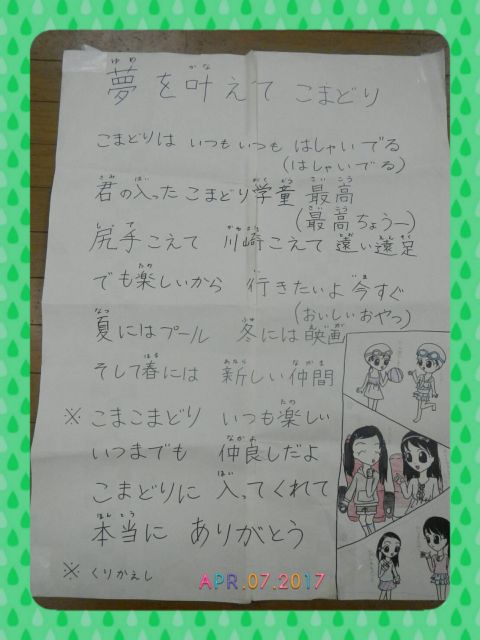 夢を叶えて こまどり
こまどりは いつもいつも はしゃいでる
(はしゃいでる)
君の入った こまどり学童 最高
(最高ちょうー)
尻手こえて 川崎こえて 遠い遠足
でも楽しいから 行きたいよ今すぐ
(おいしいおやつ)
夏にはプール 冬には映画
そして春には 新しい仲間
※ こまこまどり いつも楽しい
いつまでも 仲良しだよ
こまどりに 入ってくれて
本当に ありがとう
※ くりかえし
APR.07.2017